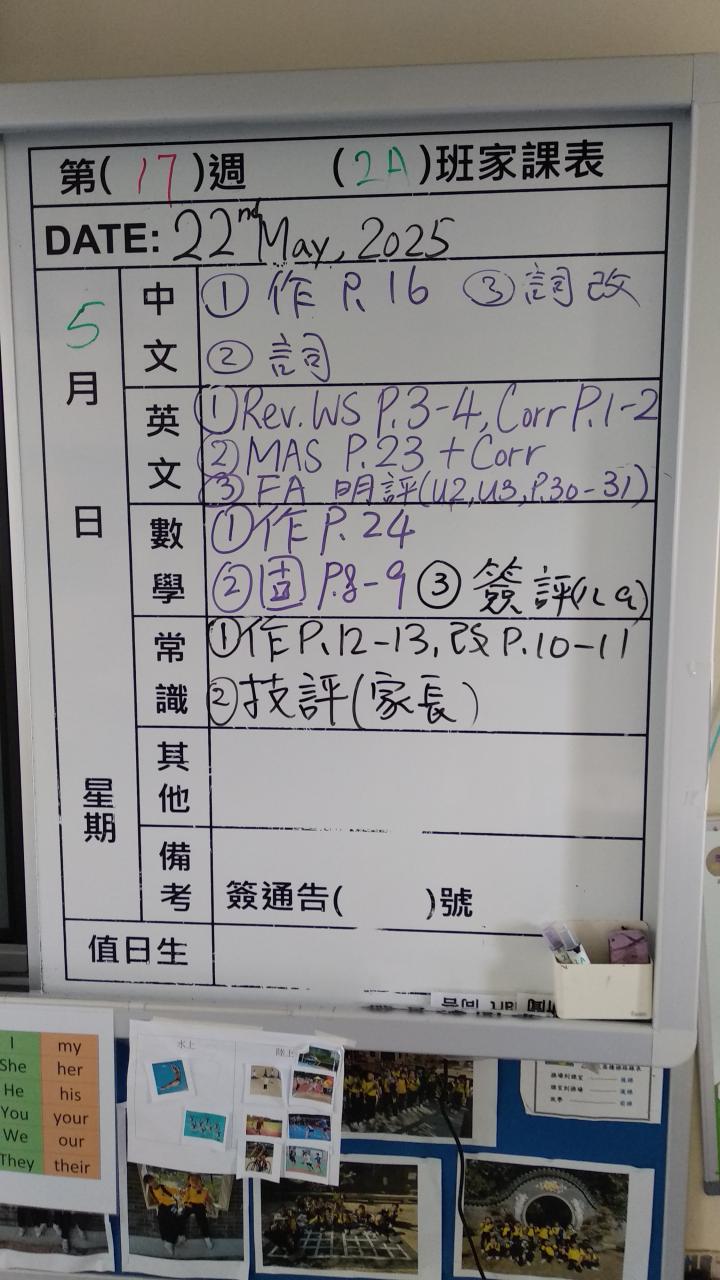 第( 17 )週 ( 2A )班家課表
DATE: 22nd May, 2025
5月 日 星期
中文
① 作 P. 16 ③ 詞改
② 詞
英文
① Rev. WS P.3-4, Corr P.1-2
② MAS P.23 + Corr
③ FA 明評(U2, U3, P.30-31)
數學
① 作 P. 24
② 固 P.8-9 ③ 簽評
常識
① 作 P.12-13, 改 P.10-11
② 技評(家長)
其他
備考
簽通告( )號
值日生
I my
She her
He his
You your
We our
They their
水上 陸上